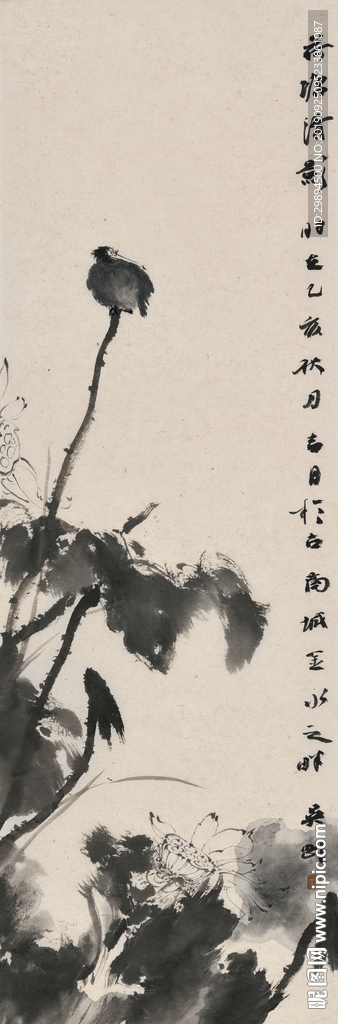 荷塘清影 时在乙亥秋月吉日于古南城金水之畔 吴
ID:29894500 NO:20190925095233961087
昵图网 www.nipic.com